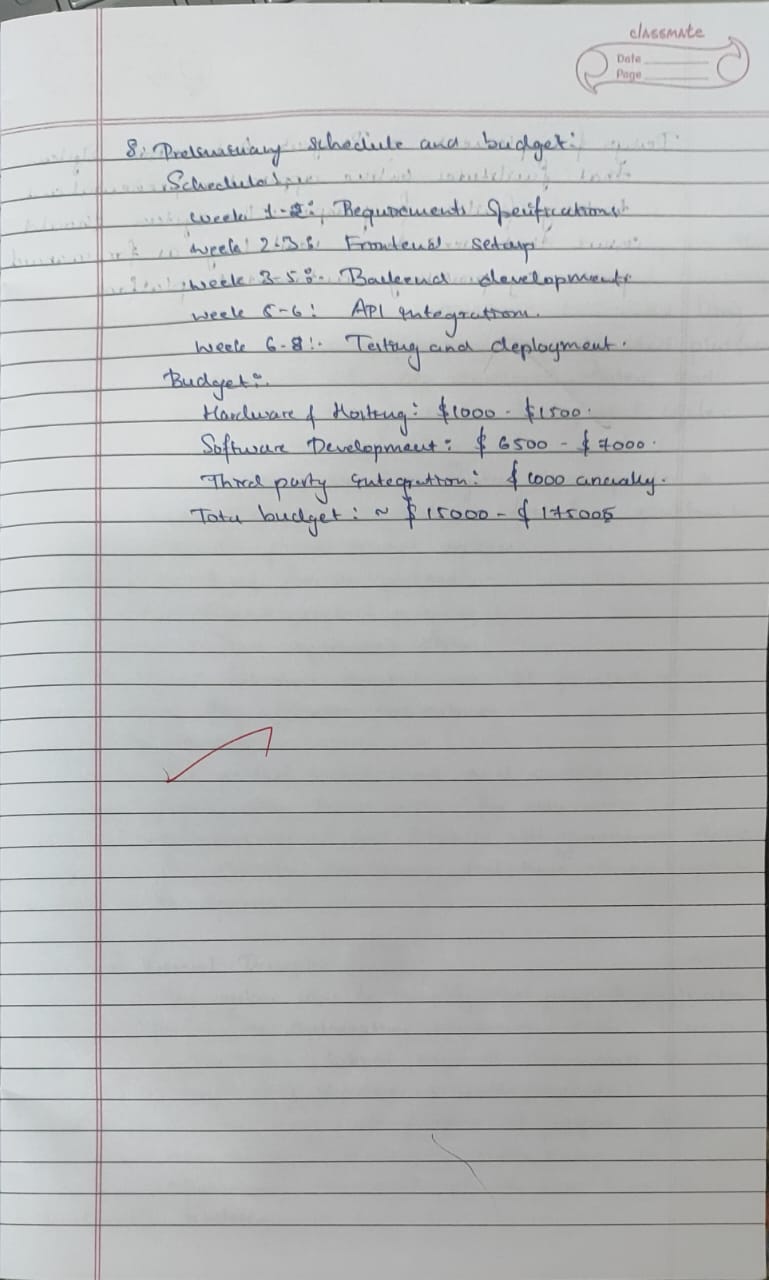 classmate
Date
Page
8. Preliminary schedule and budget:
Schedule:
week 1-2: Requirements Specifications
week 2-3: Frontend setup
week 3-5: Backend development
week 5-6: API integration.
week 6-8: Testing and deployment.
Budget:
Hardware & Hosting: $1000 - $1500.
Software Development: $6500 - $7000.
Third party integration: $1000 anually.
Total budget: ~ $15000 - $